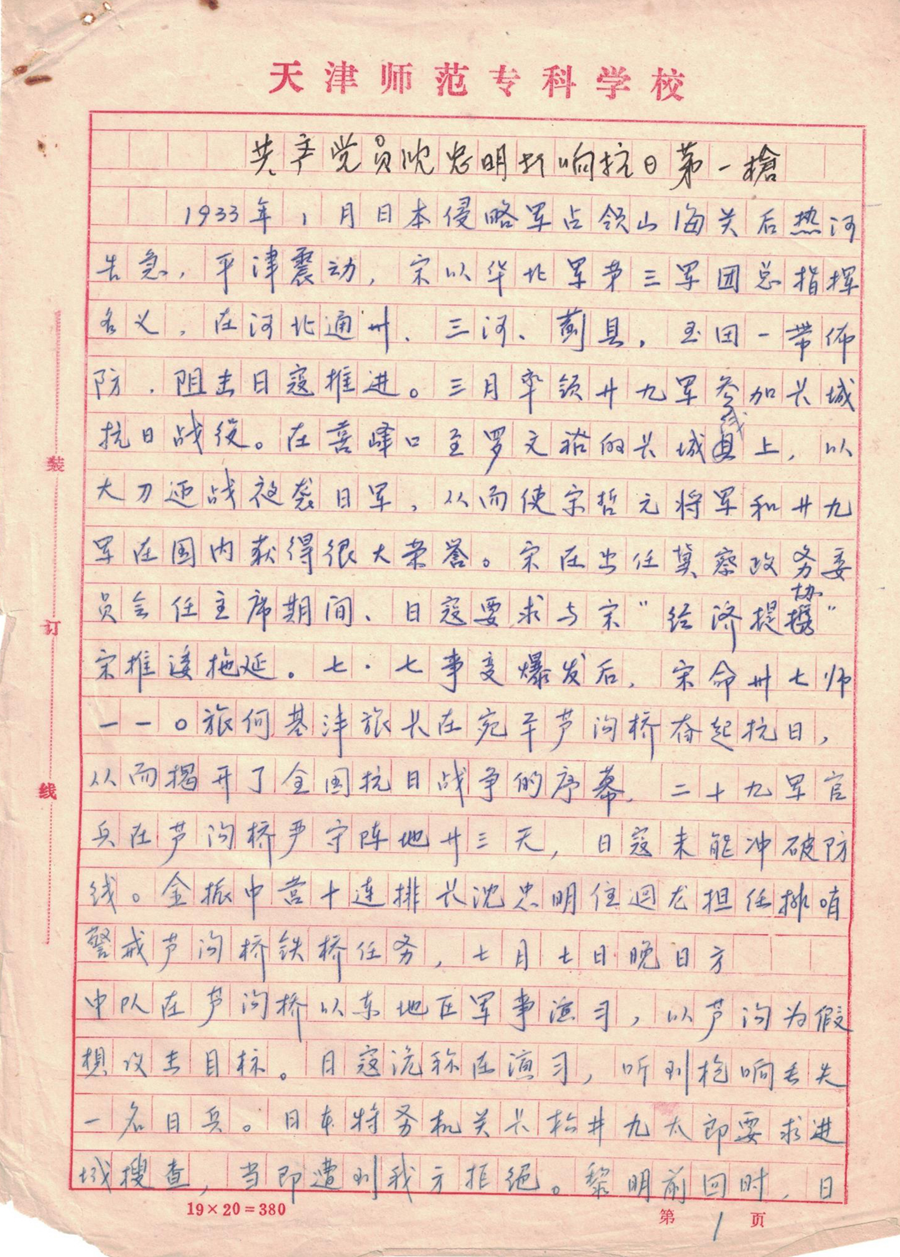 天津师范专科学校
共产党员沈忠明打响抗日第一槍
1933年1月日本侵略军占领山海关后热河
告急，平津震动，宋以华北军第三军团总指挥
名义，在河北通州、三河、蓟县，玉田一带佈
防，阻击日寇推进。三月率领廿九军参加长城
抗日战役。在喜峰口至罗文裕的长城线上，以
大刀迎战夜袭日军，从而使宋哲元将军和廿九
军在国内获得很大荣誉。宋在出任冀察政务委
员会任主席期间、日寇要求与宋“经济提协”
宋推诿拖延。七·七事变爆发后，宋命卅七师
一一〇旅何基沣旅长在宛平芦沟桥奋起抗日，
从而揭开了全国抗日战争的序幕，二十九军官
兵在芦沟桥严守阵地廿三天，日寇未能冲破防
线。金振中营十连排长沈忠明住迴龙担任排哨
警戒芦沟桥铁桥任务，七月七日晚日方
中队在芦沟桥以东地区军事演习，以芦沟为假
想攻击目标。日寇诡称在演习，听到枪响丢失
一名日兵。日本特务机关长松井九太郎要求进
城搜查，当即遭到我方拒绝。黎明前回时，日
装
订
线
19×20=380
第1页